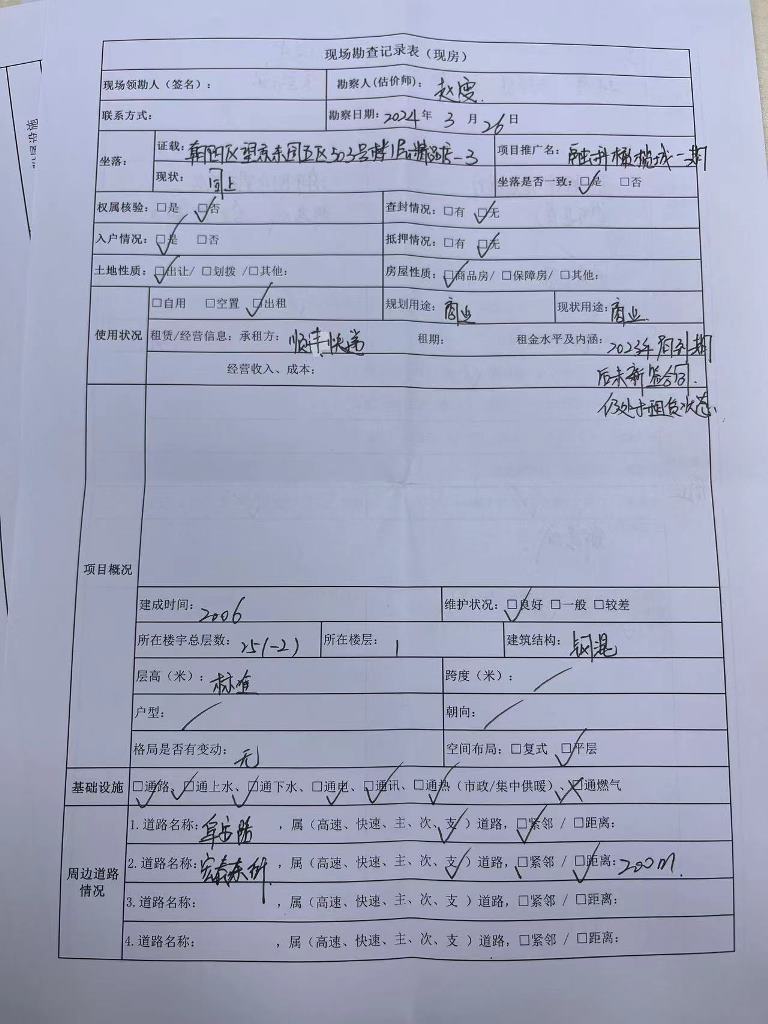 现场勘查记录表（现房）
现场领勘人（签名）： 勘察人(估价师)： 赵
联系方式： 勘察日期：2024年 3 月 26日
坐落： 证载：朝阳区望京东园五区503号楼1层商店-3 项目推广名：融科橄榄城二期
现状：同上 坐落是否一致：☑是 □否
权属核验：□是 ☑否 查封情况：□有 ☑无
入户情况：☑是 □否 抵押情况：□有 ☑无
土地性质：☑出让/ □划拨 /□其他： 房屋性质：☑商品房/ □保障房/ □其他：
使用状况 □自用 □空置 ☑出租 规划用途：商业 现状用途：商业
租赁/经营信息：承租方：顺丰快递 租期： 租金水平及内涵：2023年 到期
后未新签合同.
仍处于租赁状态.
经营收入、成本：
项目概况
建成时间：2006 维护状况：☑良好 □一般 □较差
所在楼宇总层数：25(-2) 所在楼层：1 建筑结构：钢混
层高（米）：标准 跨度（米）：/
户型：/ 朝向：/
格局是否有变动：无 空间布局：□复式 ☑平层
基础设施 ☑通路、☑通上水、☑通下水、☑通电、☑通讯、☑通热（市政/集中供暖）、☒通燃气
周边道路情况
1.道路名称：阜安路 ，属（高速、快速、主、次、支✓）道路，☑紧邻 / □距离：
2.道路名称：宏泰东街 ，属（高速、快速、主、次、支✓）道路，□紧邻 / ☑距离：200m.
3.道路名称： ，属（高速、快速、主、次、支 ）道路，□紧邻 / □距离：
4.道路名称： ，属（高速、快速、主、次、支 ）道路，□紧邻 / □距离：